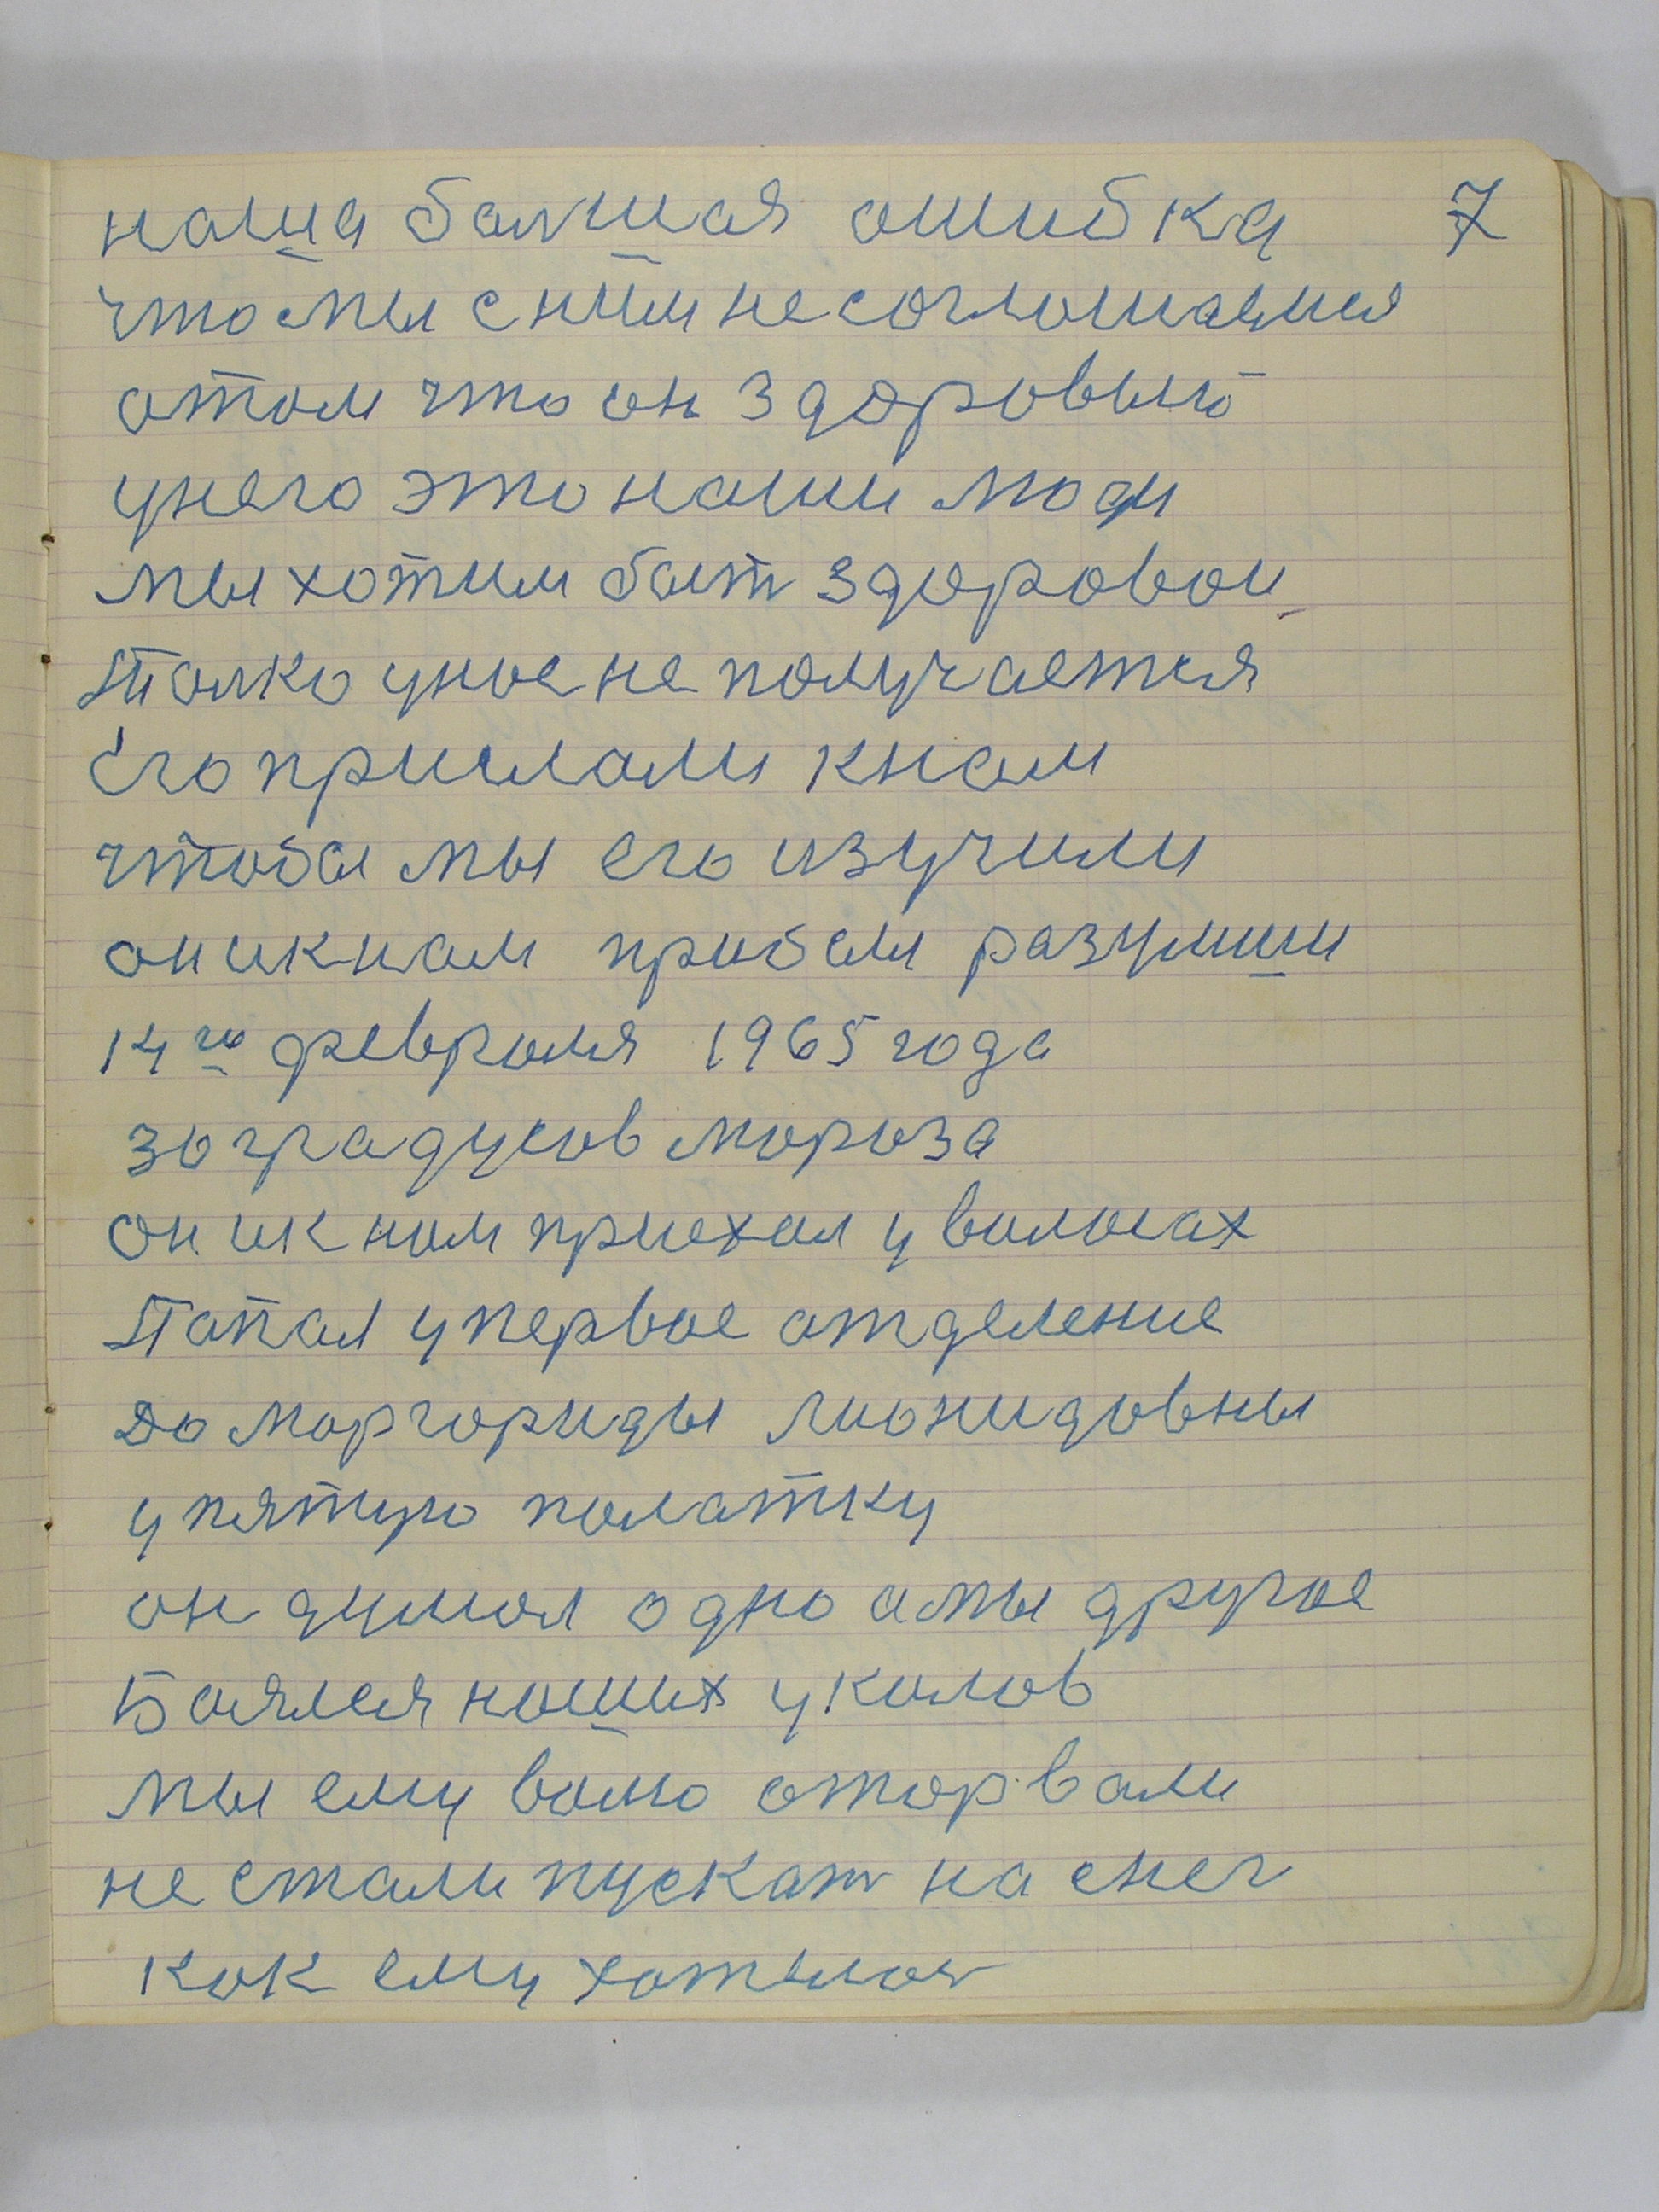 наша балшая ошибка 7
что мы с ним не соглошаемся
о том что он здоровый
у него это наши люди
мы хотим быт здоровои
Толко у нас не получается
Его прислали к нам
чтобы мы его изучили
он и к нам прибыл разумиши
14го февроля 1965 года
30 градусов мороза
он и к нам приехал у волосах
Папал у первое отделение
до Моргориды Лионидовны
у пятую полатку
он думол одно а мы другое
Боялся наших уколов
мы ему волю оторвали
не стали пускат на снег
кок ему хотелос